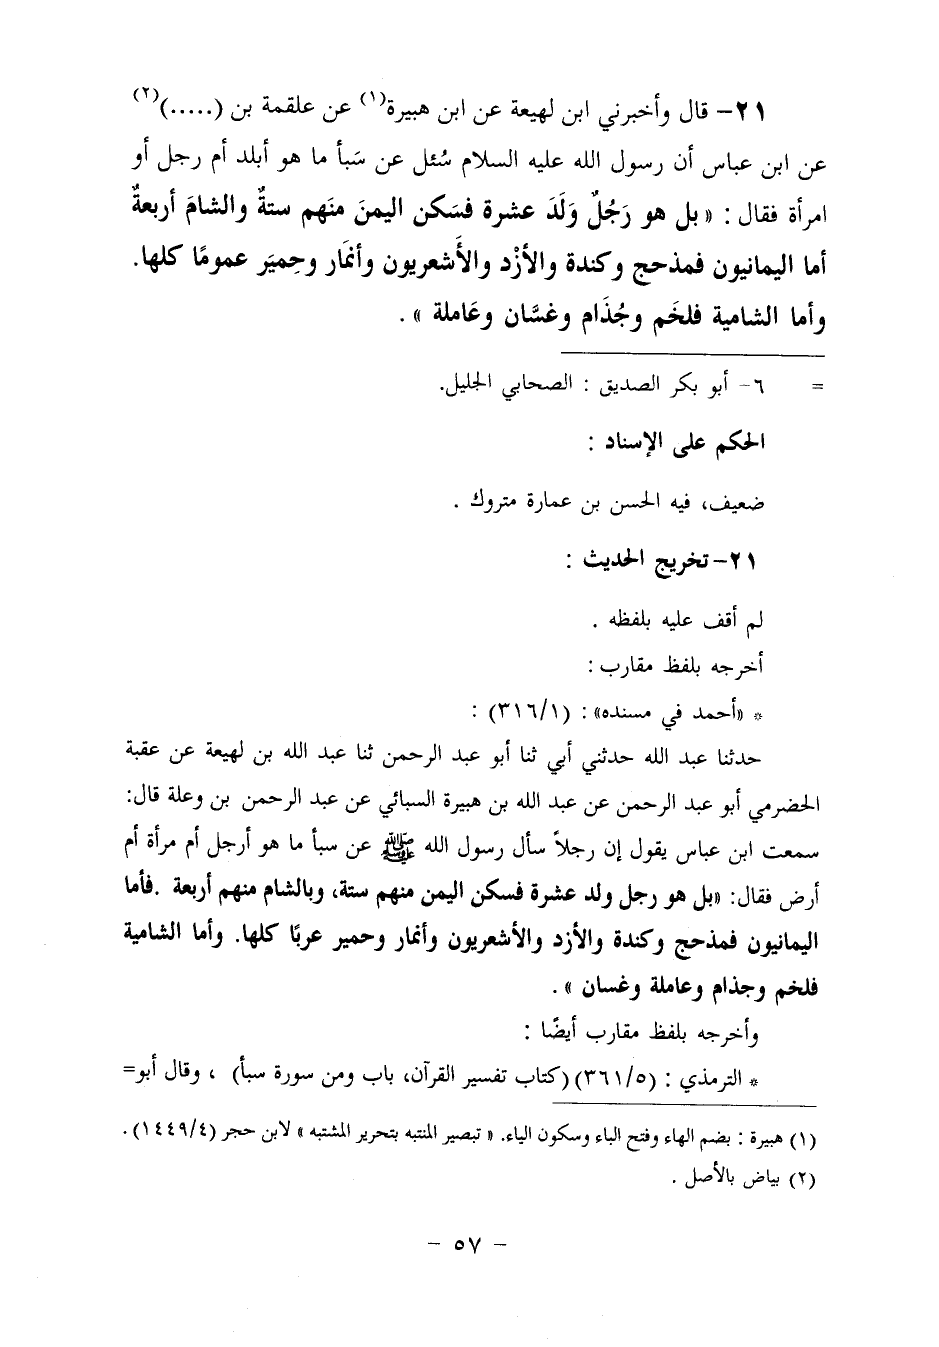 ٢١- قال وأخبرني ابن لهيعة عن ابن هبيرة(١) عن علقمة بن (.....)(٢)
عن ابن عباس أن رسول الله عليه السلام سُئل عن سَبأ ما هو أبلد أم رجل أو
امرأة فقال : « بل هو رَجُلٌ وَلَدَ عشرة فسَكن اليمنَ منَهم ستةٌ والشامَ أربعةٌ
أما اليمانيون فمذحج وكندة والأزْد والأَشعريون وأنمَار وحِميَر عمومًا كلها.
وأما الشامية فلخَم وجُذَام وغسَّان وعَاملة » .
= ٦- أبو بكر الصديق : الصحابي الجليل.
الحكم على الإسناد :
ضعيف، فيه الحسن بن عمارة متروك .
٢١- تخريج الحديث :
لم أقف عليه بلفظه .
أخرجه بلفظ مقارب :
* «أحمد في مسنده» : (٣١٦/١) :
حدثنا عبد الله حدثني أبي ثنا أبو عبد الرحمن ثنا عبد الله بن لهيعة عن عقبة
الحضرمي أبو عبد الرحمن عن عبد الله بن هبيرة السبائي عن عبد الرحمن بن وعلة قال:
سمعت ابن عباس يقول إن رجلاً سأل رسول الله ﷺ عن سبأ ما هو أرجل أم مرأة أم
أرض فقال: «بل هو رجل ولد عشرة فسكن اليمن منهم ستة، وبالشام منهم أربعة .فأما
اليمانيون فمذحج وكندة والأزد والأشعريون وأنمار وحمير عربًا كلها. وأما الشامية
فلخم وجذام وعاملة وغسان » .
وأخرجه بلفظ مقارب أيضًا :
* الترمذي : (٣٦١/٥) (كتاب تفسير القرآن، باب ومن سورة سبأ) ، وقال أبو=
(١) هبيرة : بضم الهاء وفتح الباء وسكون الياء. « تبصير المنتبه بتحرير المشتبه » لابن حجر (١٤٤٩/٤) .
(٢) بياض بالأصل .
- ٥٧ -